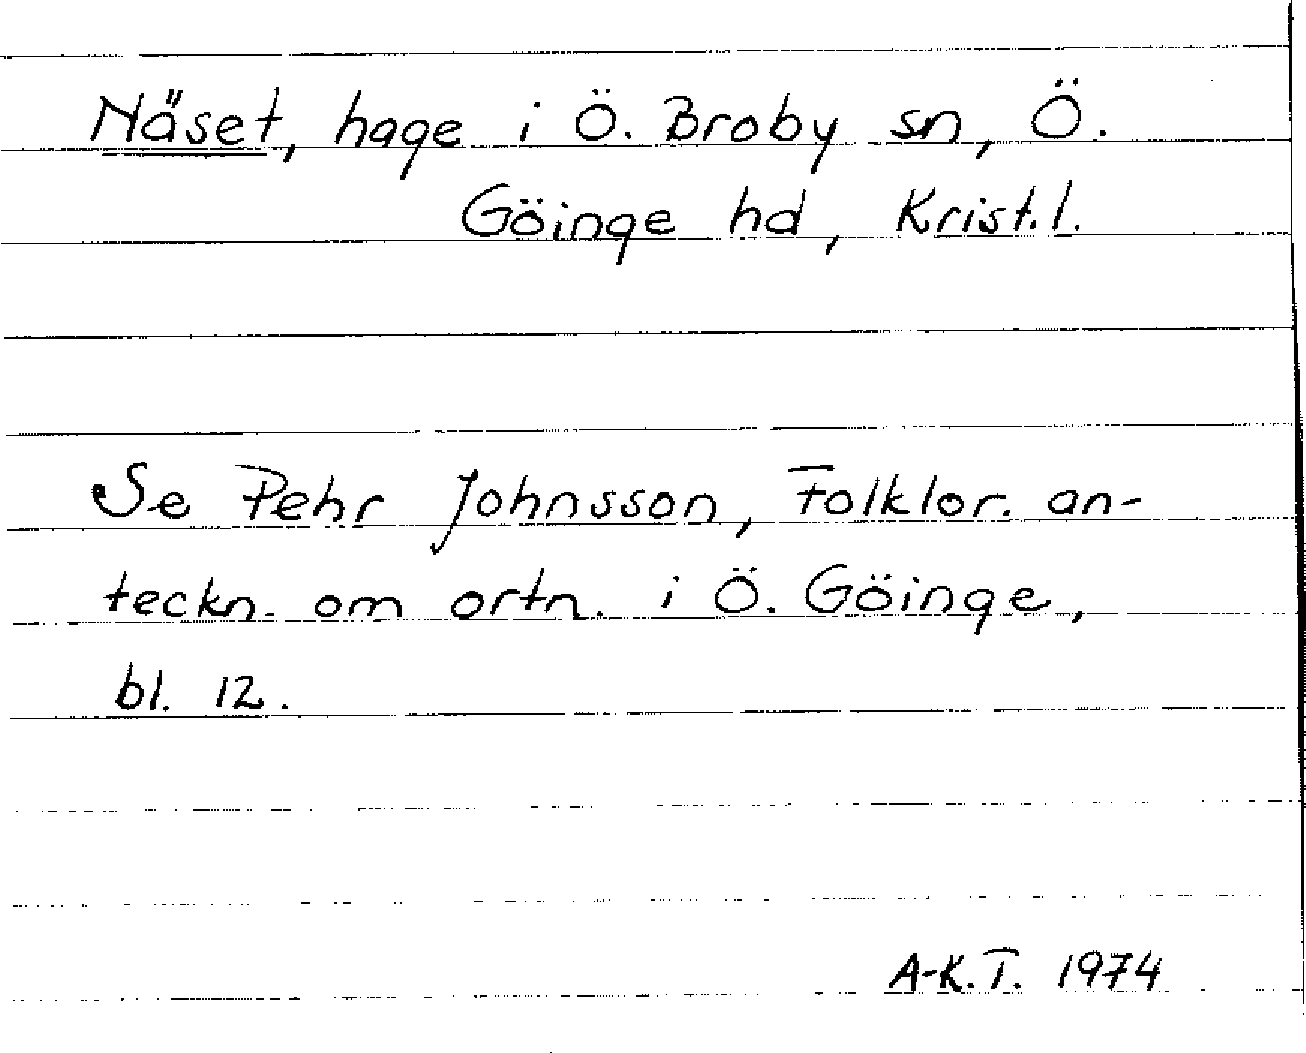 Näset, hage i Ö. Broby sn, Ö.
Göinge hd, Krist. l.
Se Pehr Johnsson, Folklor. an-
teckn. om ortn. i Ö. Göinge,
bl. 12.
A-K.T. 1974